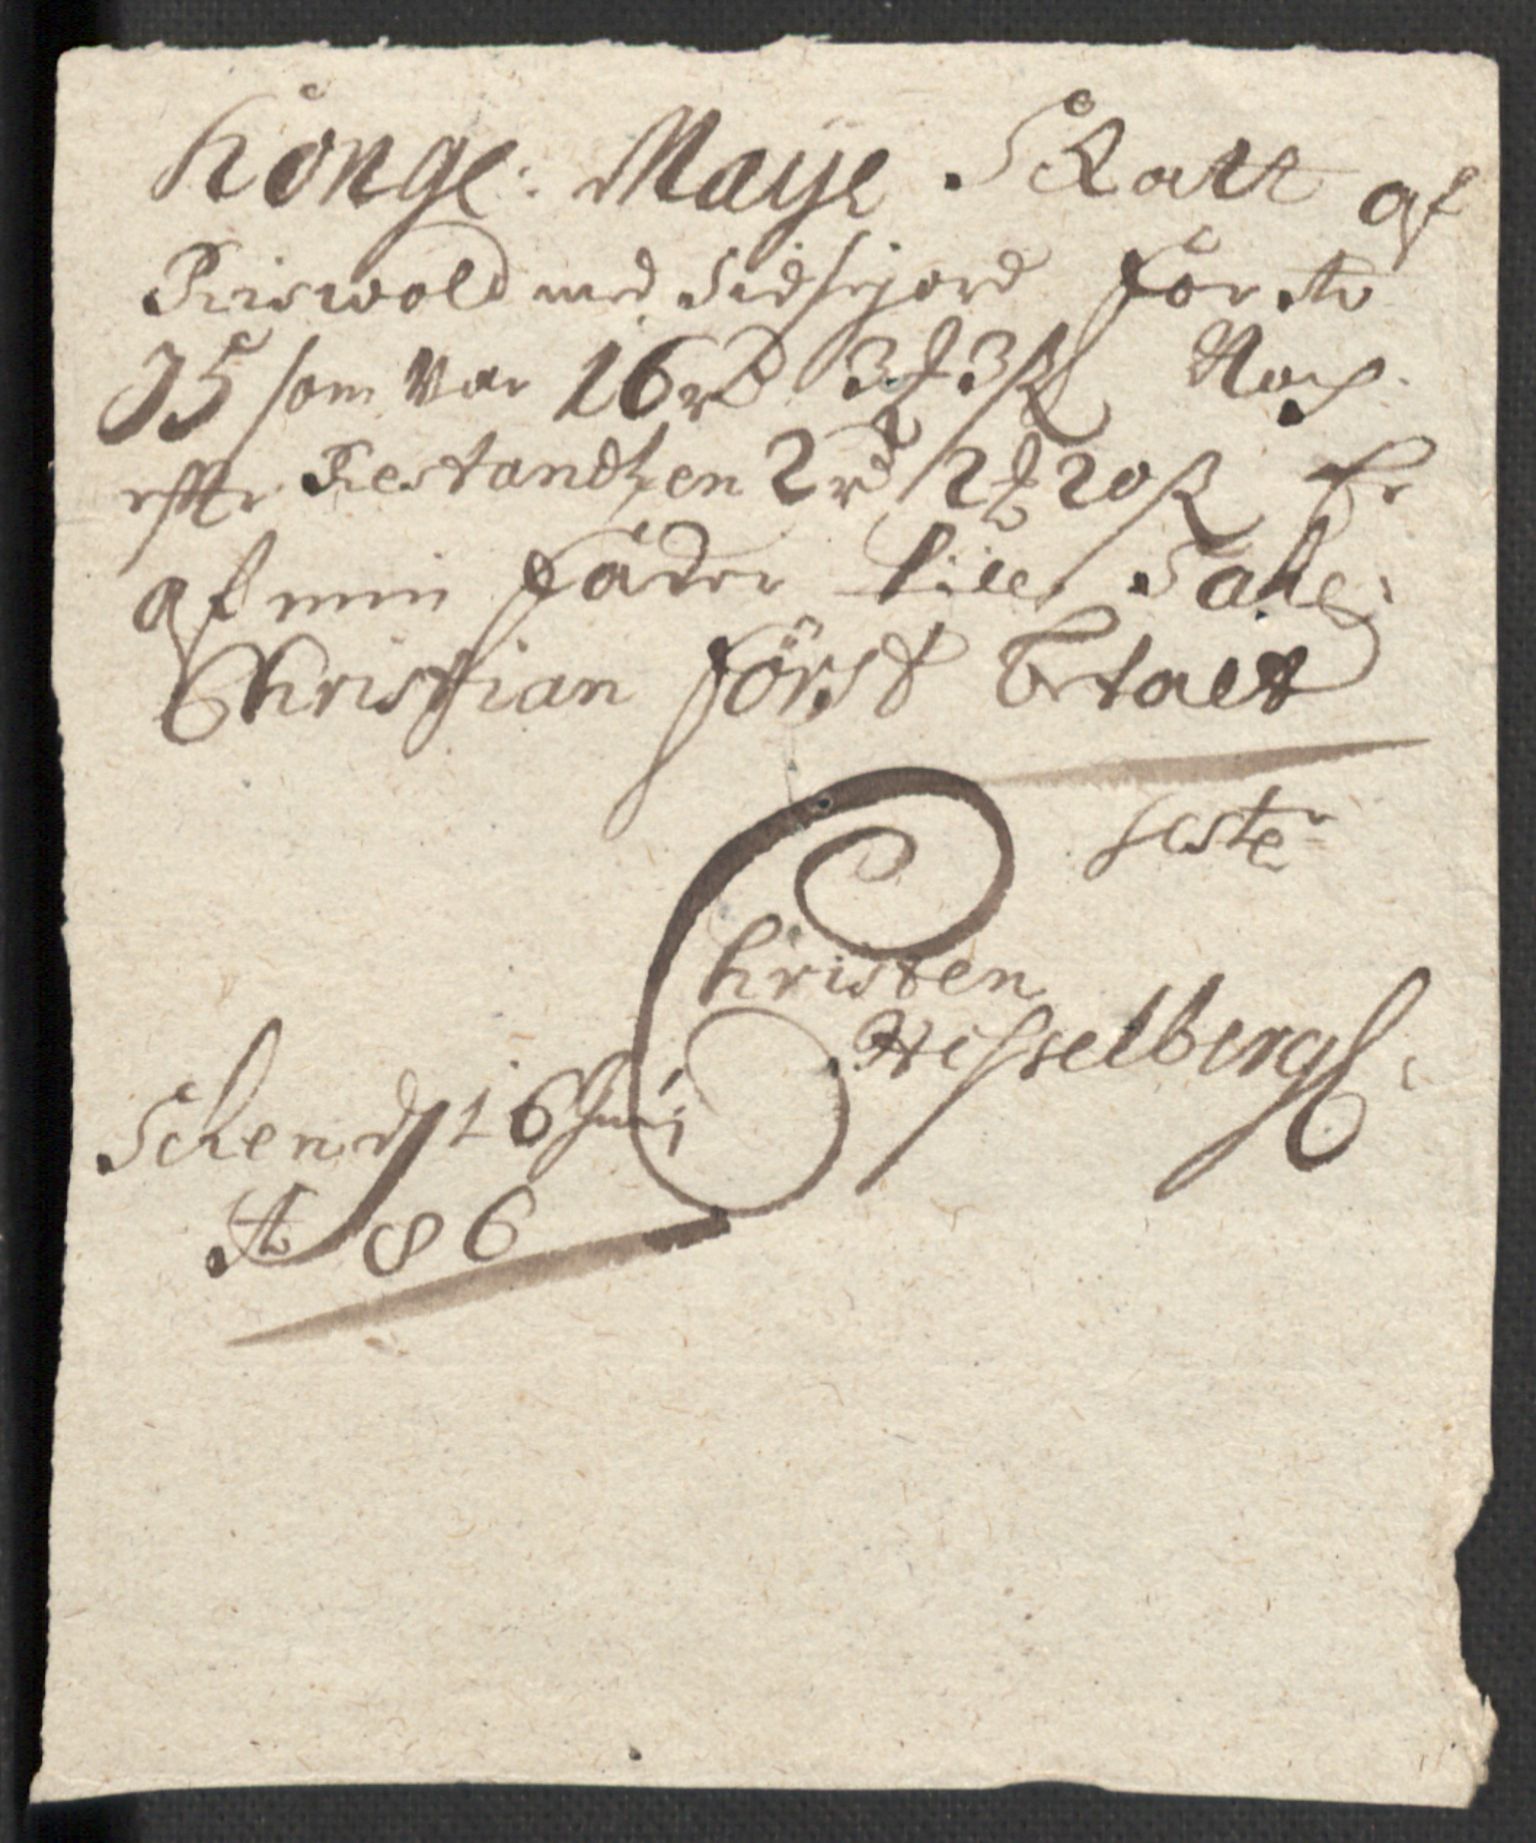 Konge: Mayᵗ Skatt af
Riiswold med Sidsejord for Ao
75 som var 16 rd 3 ℔ 3 ß Noch
efter Restandtzen 2 rd 2 ℔ 20 ß Er
af min Fader till Sale:
Christian Först Betalt
testr
Christen
Hesselbergh:
Schen d 16 Junij
Ao 86